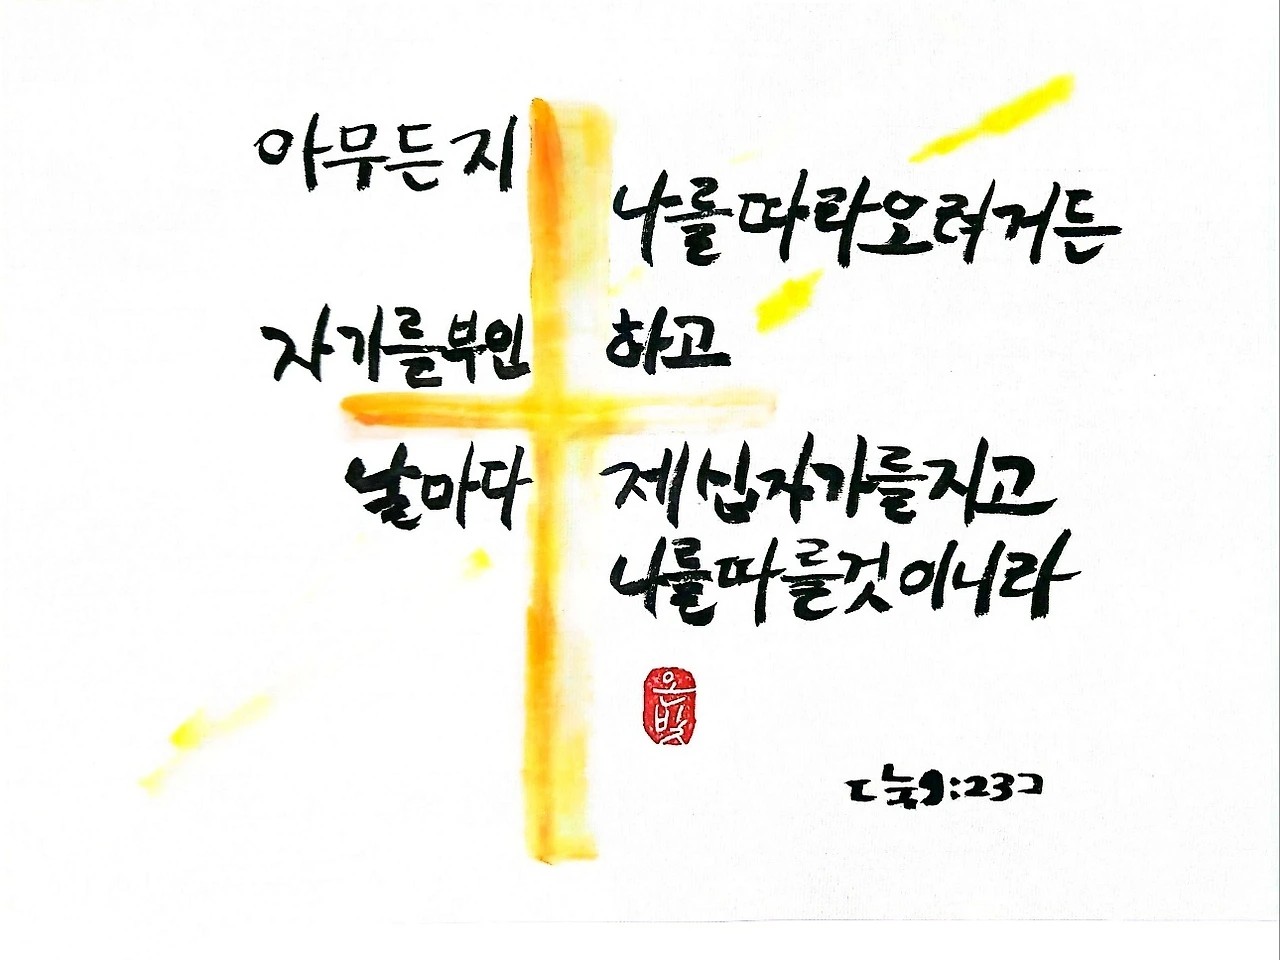 아무든지 나를 따라오려거든
자기를 부인하고
날마다 제 십자가를 지고
나를 따를 것이니라
은빛
[눅9:23]